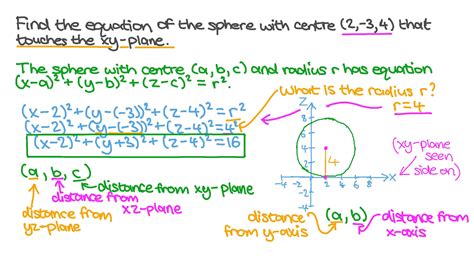 Find the equation of the sphere with centre (2,-3,4) that
touches the xy-plane.
The sphere with centre (a,b,c) and radius r has equation
(x-a)²+(y-b)²+(z-c)²=r².
What is the radius r?
r=4
(x-2)²+(y-(-3))²+(z-4)²=r²
(x-2)²+(y-(-3))²+(z-4)²=4²
(x-2)²+(y+3)²+(z-4)²=16
(a,b,c)
distance from xy-plane
distance from
xz-plane
distance from
yz-plane
z
8
6
4
2
-4 -2 2 4 6 8 x
-2
-4
4
(xy-plane
seen
side on)
(a,b)
distance
from y-axis
distance from
x-axis